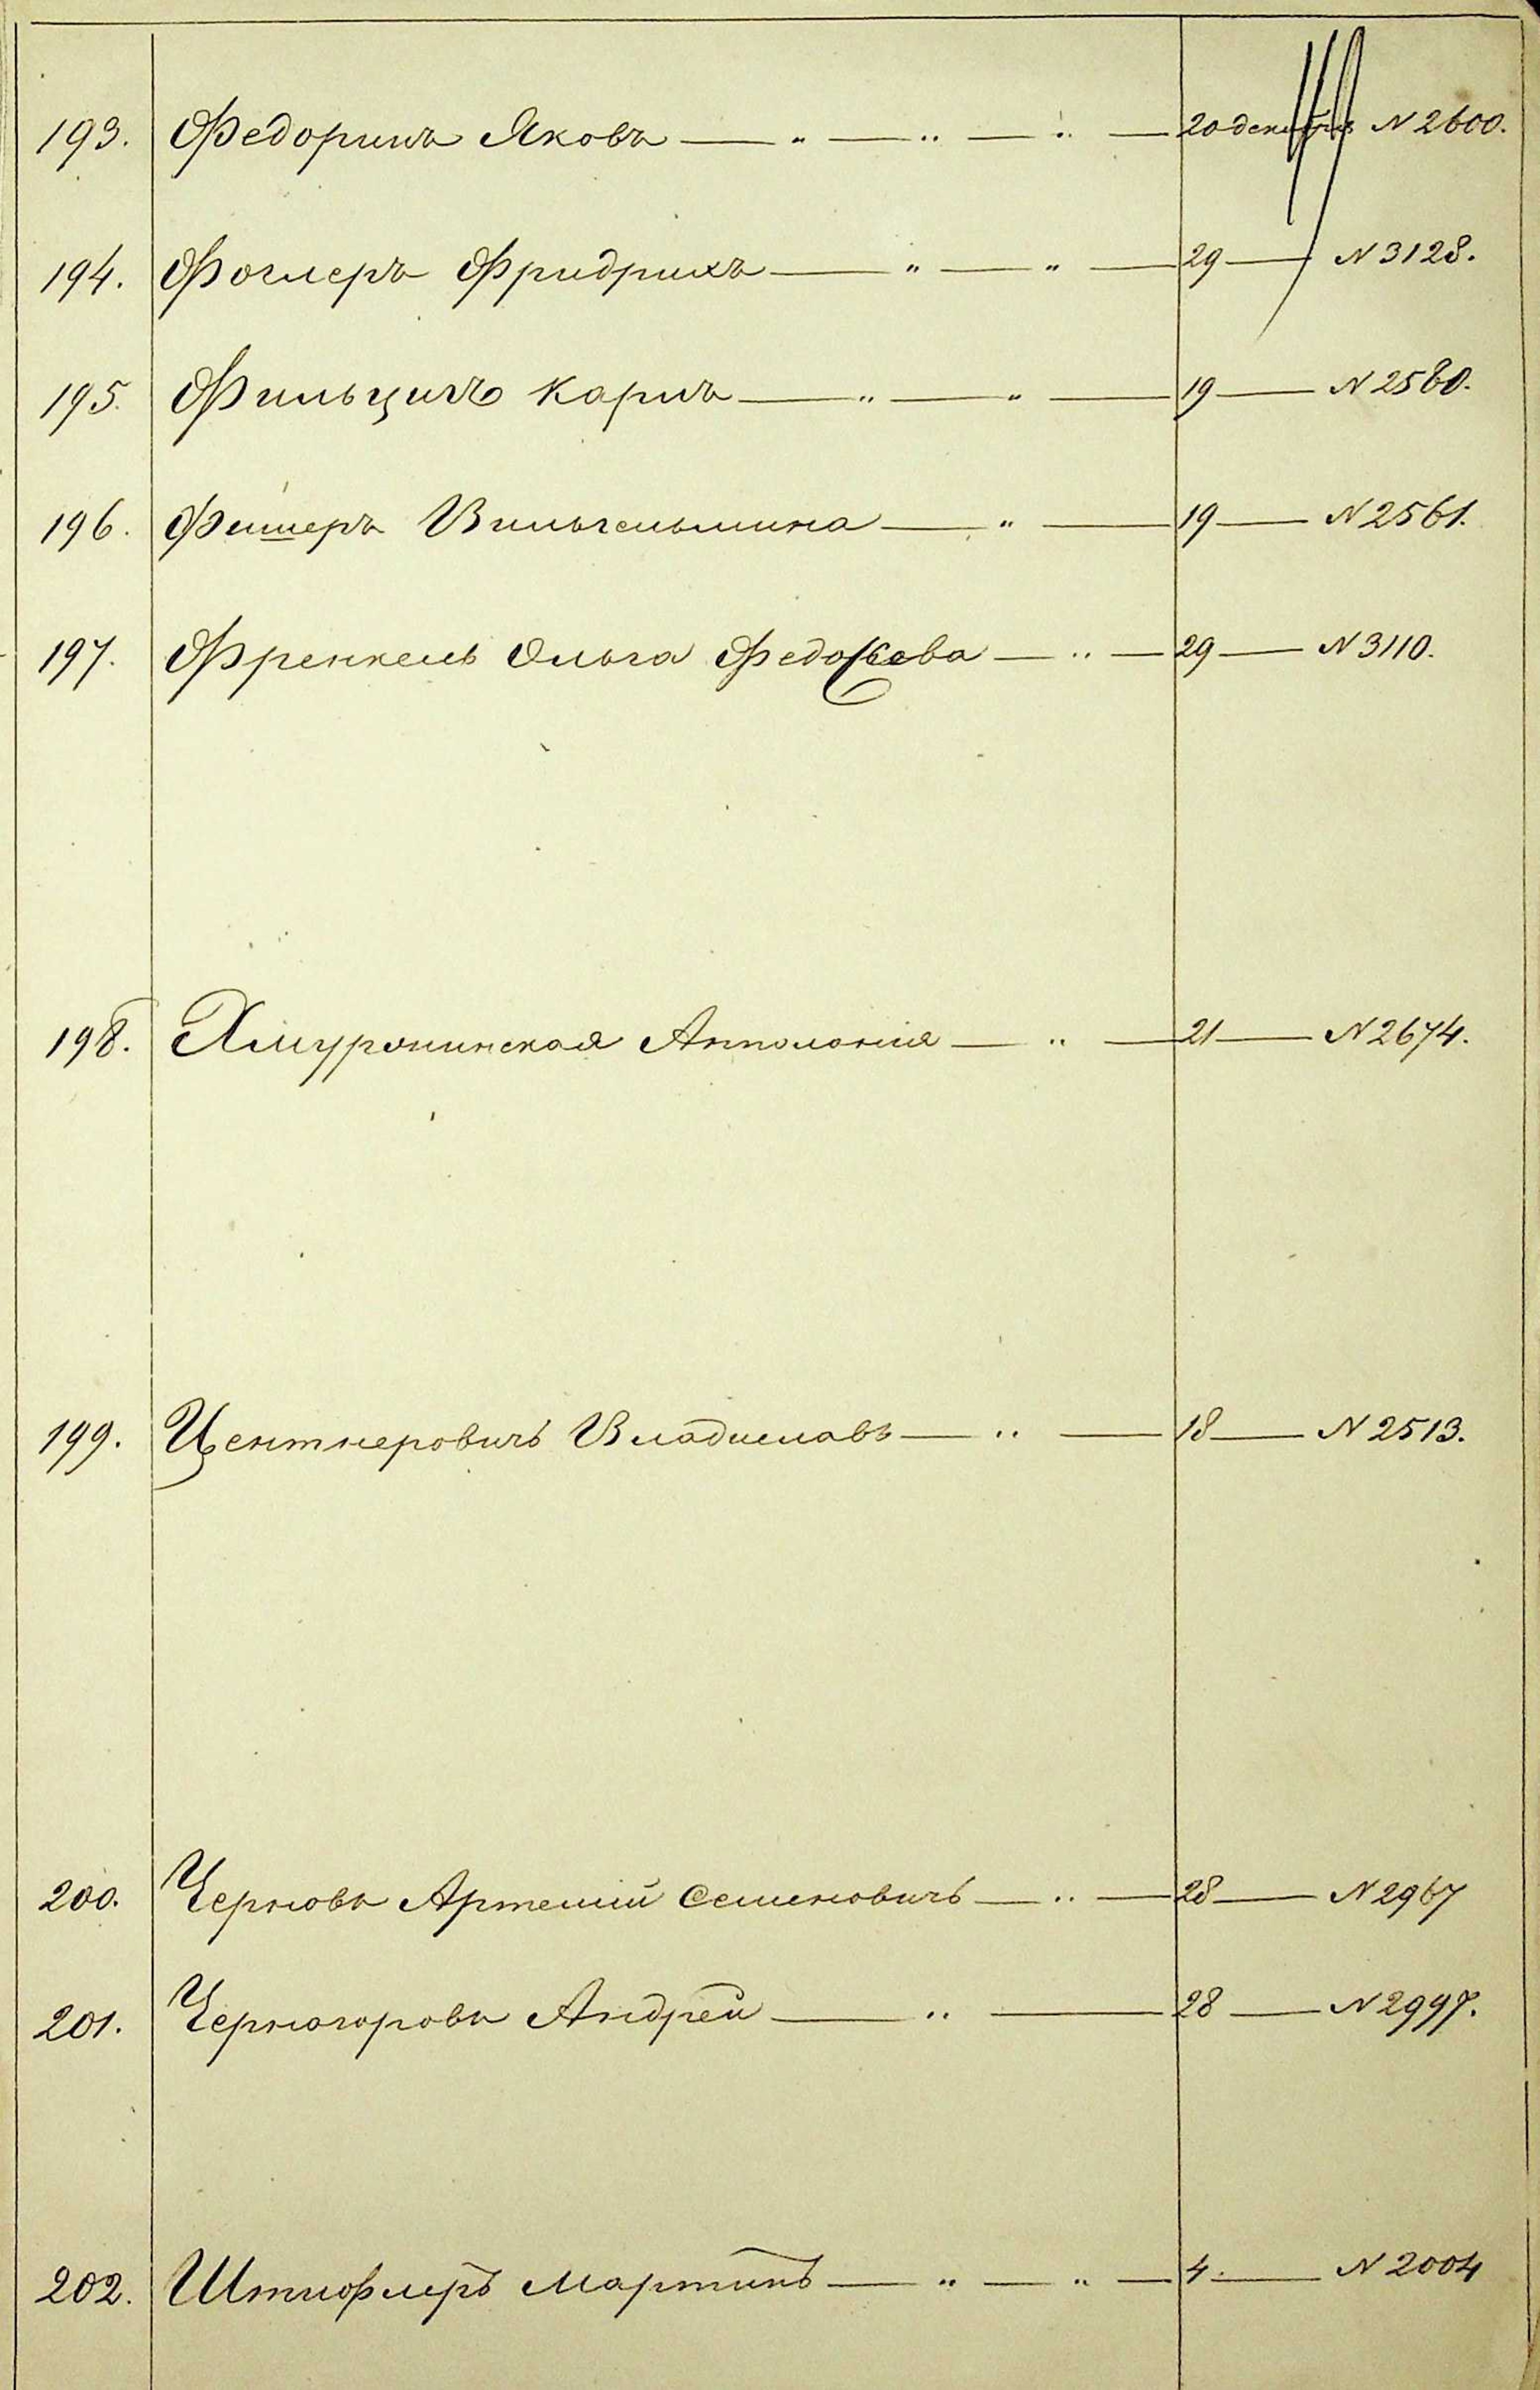 193. Федоринъ Яковъ — " — " — " — 20 декабря N 2600.
194. Фоглеръ Фридрихъ — " — " — 29 — N 3128.
195. Фильцигъ Карлъ — " — " — 19 — N 2560.
196. Фишеръ Вильгельмина — " — 19 — N 2561.
197. Френкель Ольга — " — 29 — N 3110.
198. Аполонія — " — 21 — N 2674.
199. Центнеровичъ Владиславъ — " — 18 — N 2513.
200. Черновъ Артемій Семеновичъ — " — 28 — N 2967
201. Черногоровъ Андрей — " — 28 — N 2997.
202. Штиофлеръ Мартинъ — " — " — 4. — N 2004